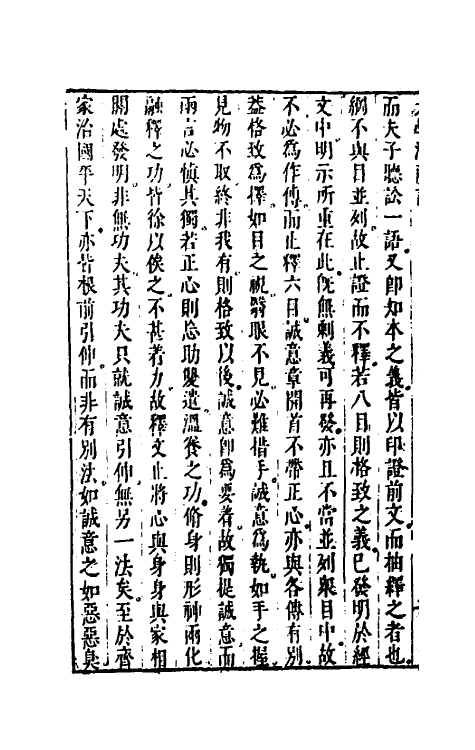 而夫子聽訟一語又卽知本之義皆以印證前文而紬釋之者也
綱不與目並列故止證而不釋若八目則格致之義已發明於經
文中明示所重在此旣無剩義可再發亦且不當並列衆目中故
不必爲作傳而止釋六目誠意章開首不帶正心亦與各傳有別
葢格致爲擇如目之視翳眼不見必難措手誠意爲執如手之握
見物不取終非我有則格致以後誠意卽爲要著故獨提誠意而
兩言必愼其獨若正心則忿助雙遣溫養之功脩身則形神兩化
融釋之功皆徐以俟之不甚著力故釋文止將心與身身與家相
關處發明非無功夫其功夫只就誠意引伸無另一法矣至於齊
家治國平天下亦皆根前引伸而非有別法如誠意之如惡惡臭